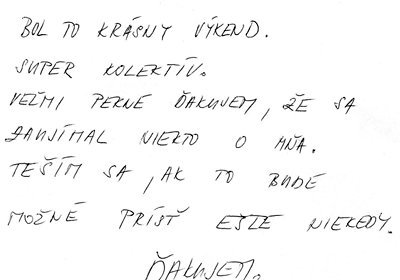 BOL TO KRÁSNY VÝKEND.
SUPER KOLEKTÍV.
VEĽMI PEKNE ĎAKUJEM, ŽE SA
ZAUJÍMAL NIEKTO O MŇA.
TEŠÍM SA, AK TO BUDE
MOŽNÉ PRÍSŤ EŠTE NIEKEDY.
ĎAKUJEM.